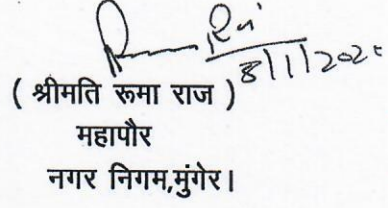 8/1/202
( श्रीमति रूमा राज )
महापौर
नगर निगम,मुंगेर।